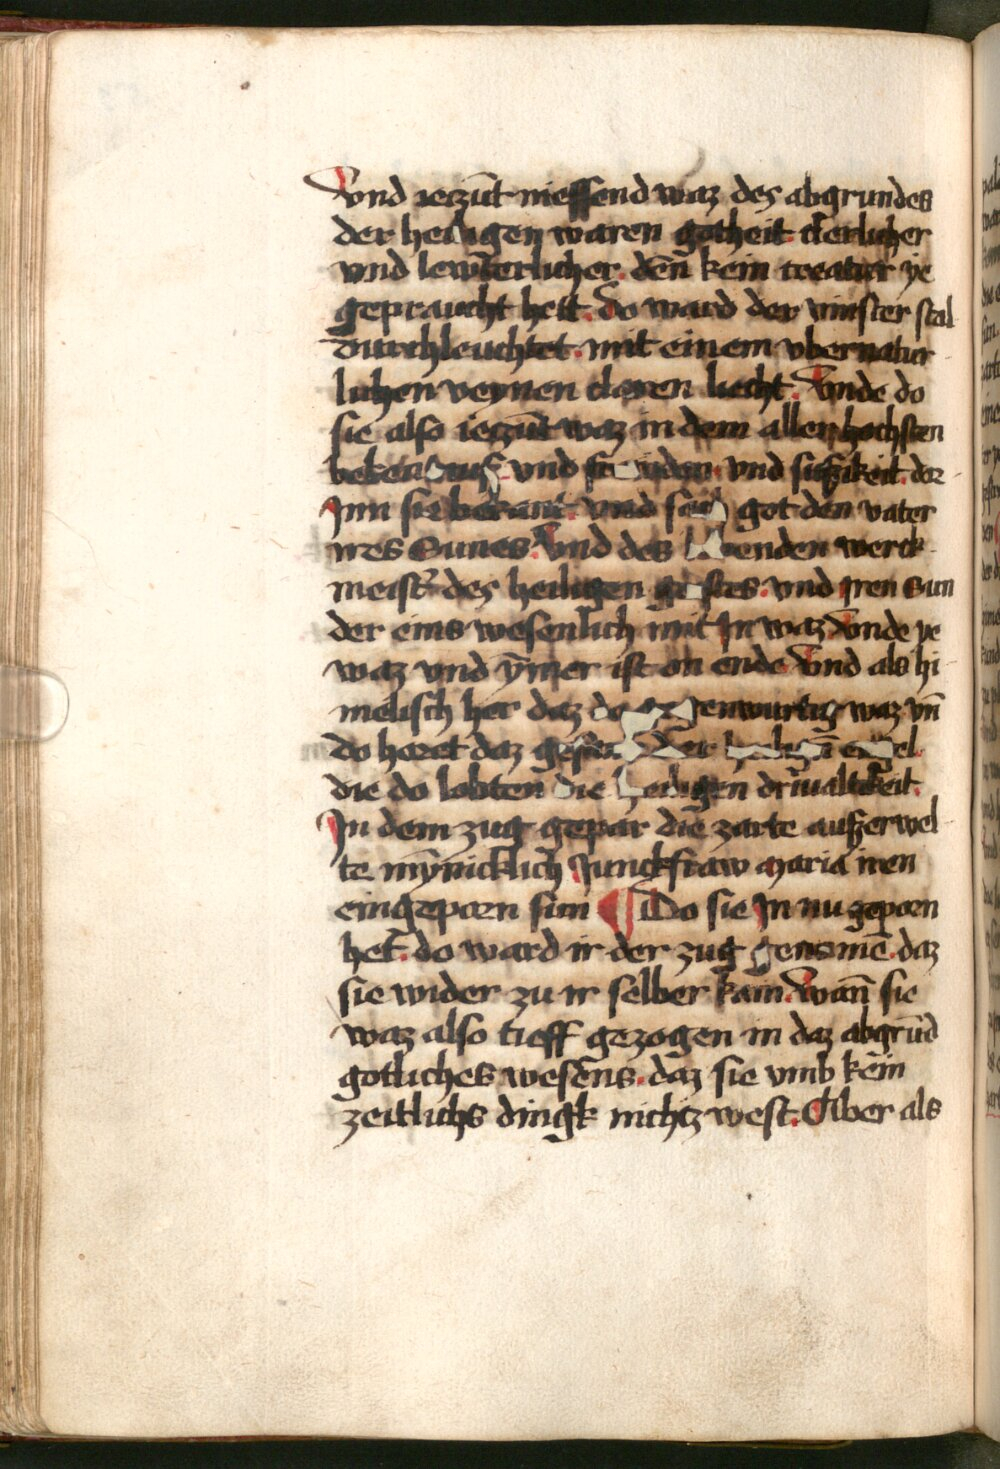 Vnd ieczūt nieſſend waz des abgrundes
der heiligen waren gotheit clerlicher
vnd lewterlicher. den̄ kein creatur ye
gepraucht hett. do ward der vinſter ſtal
durchleuchtet. mit einem vbernatur
lichen reynen claren liecht. Vnde do
ſie alſo ieczūt waz in dem aller hochſten
vnd vnd ſuſſikeit. dor
Inn ſie bekant. vnd ſach got den vater
ires Sunes. Vnd des werck
meiſt̄ des heiligen vnd Iren Sun
der eins weſenlich mit In waz. Vnde ye
waz vnd ȳmer iſt on ende. Vnd als hi
meliſch her daz do gegenwurtig waz vn̄
do horet daz der
die do lobten die heiligen driualtikeit.
In dem zug gepar die zarte auſzerwel
te mȳnicklich Junckfraw Maria iren
eingeporn ſun ¶ Do ſie In nu geporn
het. do ward ir der zug genomē. daz
ſie wider zu ir ſelber kam. Wan̄ ſie
waz alſo tieff gezogen in daz abgrūd
gotliches weſens. daz ſie vmb kein
zeitlichs dingk nichtz weſt. Aber als